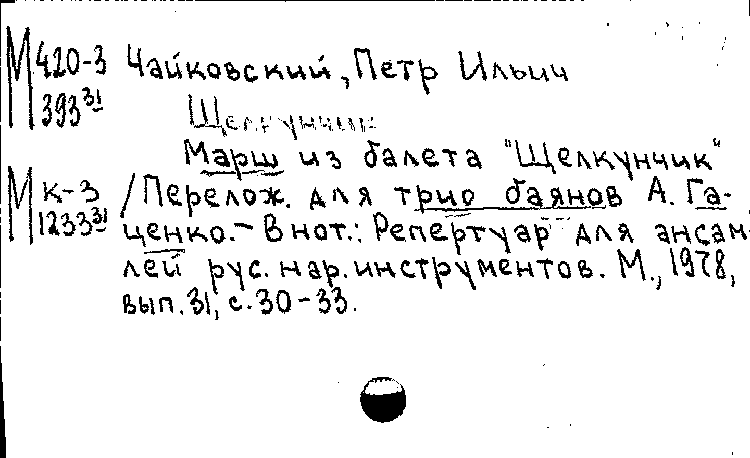 М 420-3 Чайковский, Петр Ильич
393 31 Щелкунчик
Марш из балета "Щелкунчик"
М к-3 /Перелож. для трио баянов А. Га-
1233 31 ценко. - В нот.: Репертуар для ансам
лей рус. нар. инструментов. М., 1978,
вып. 31, с. 30-33.